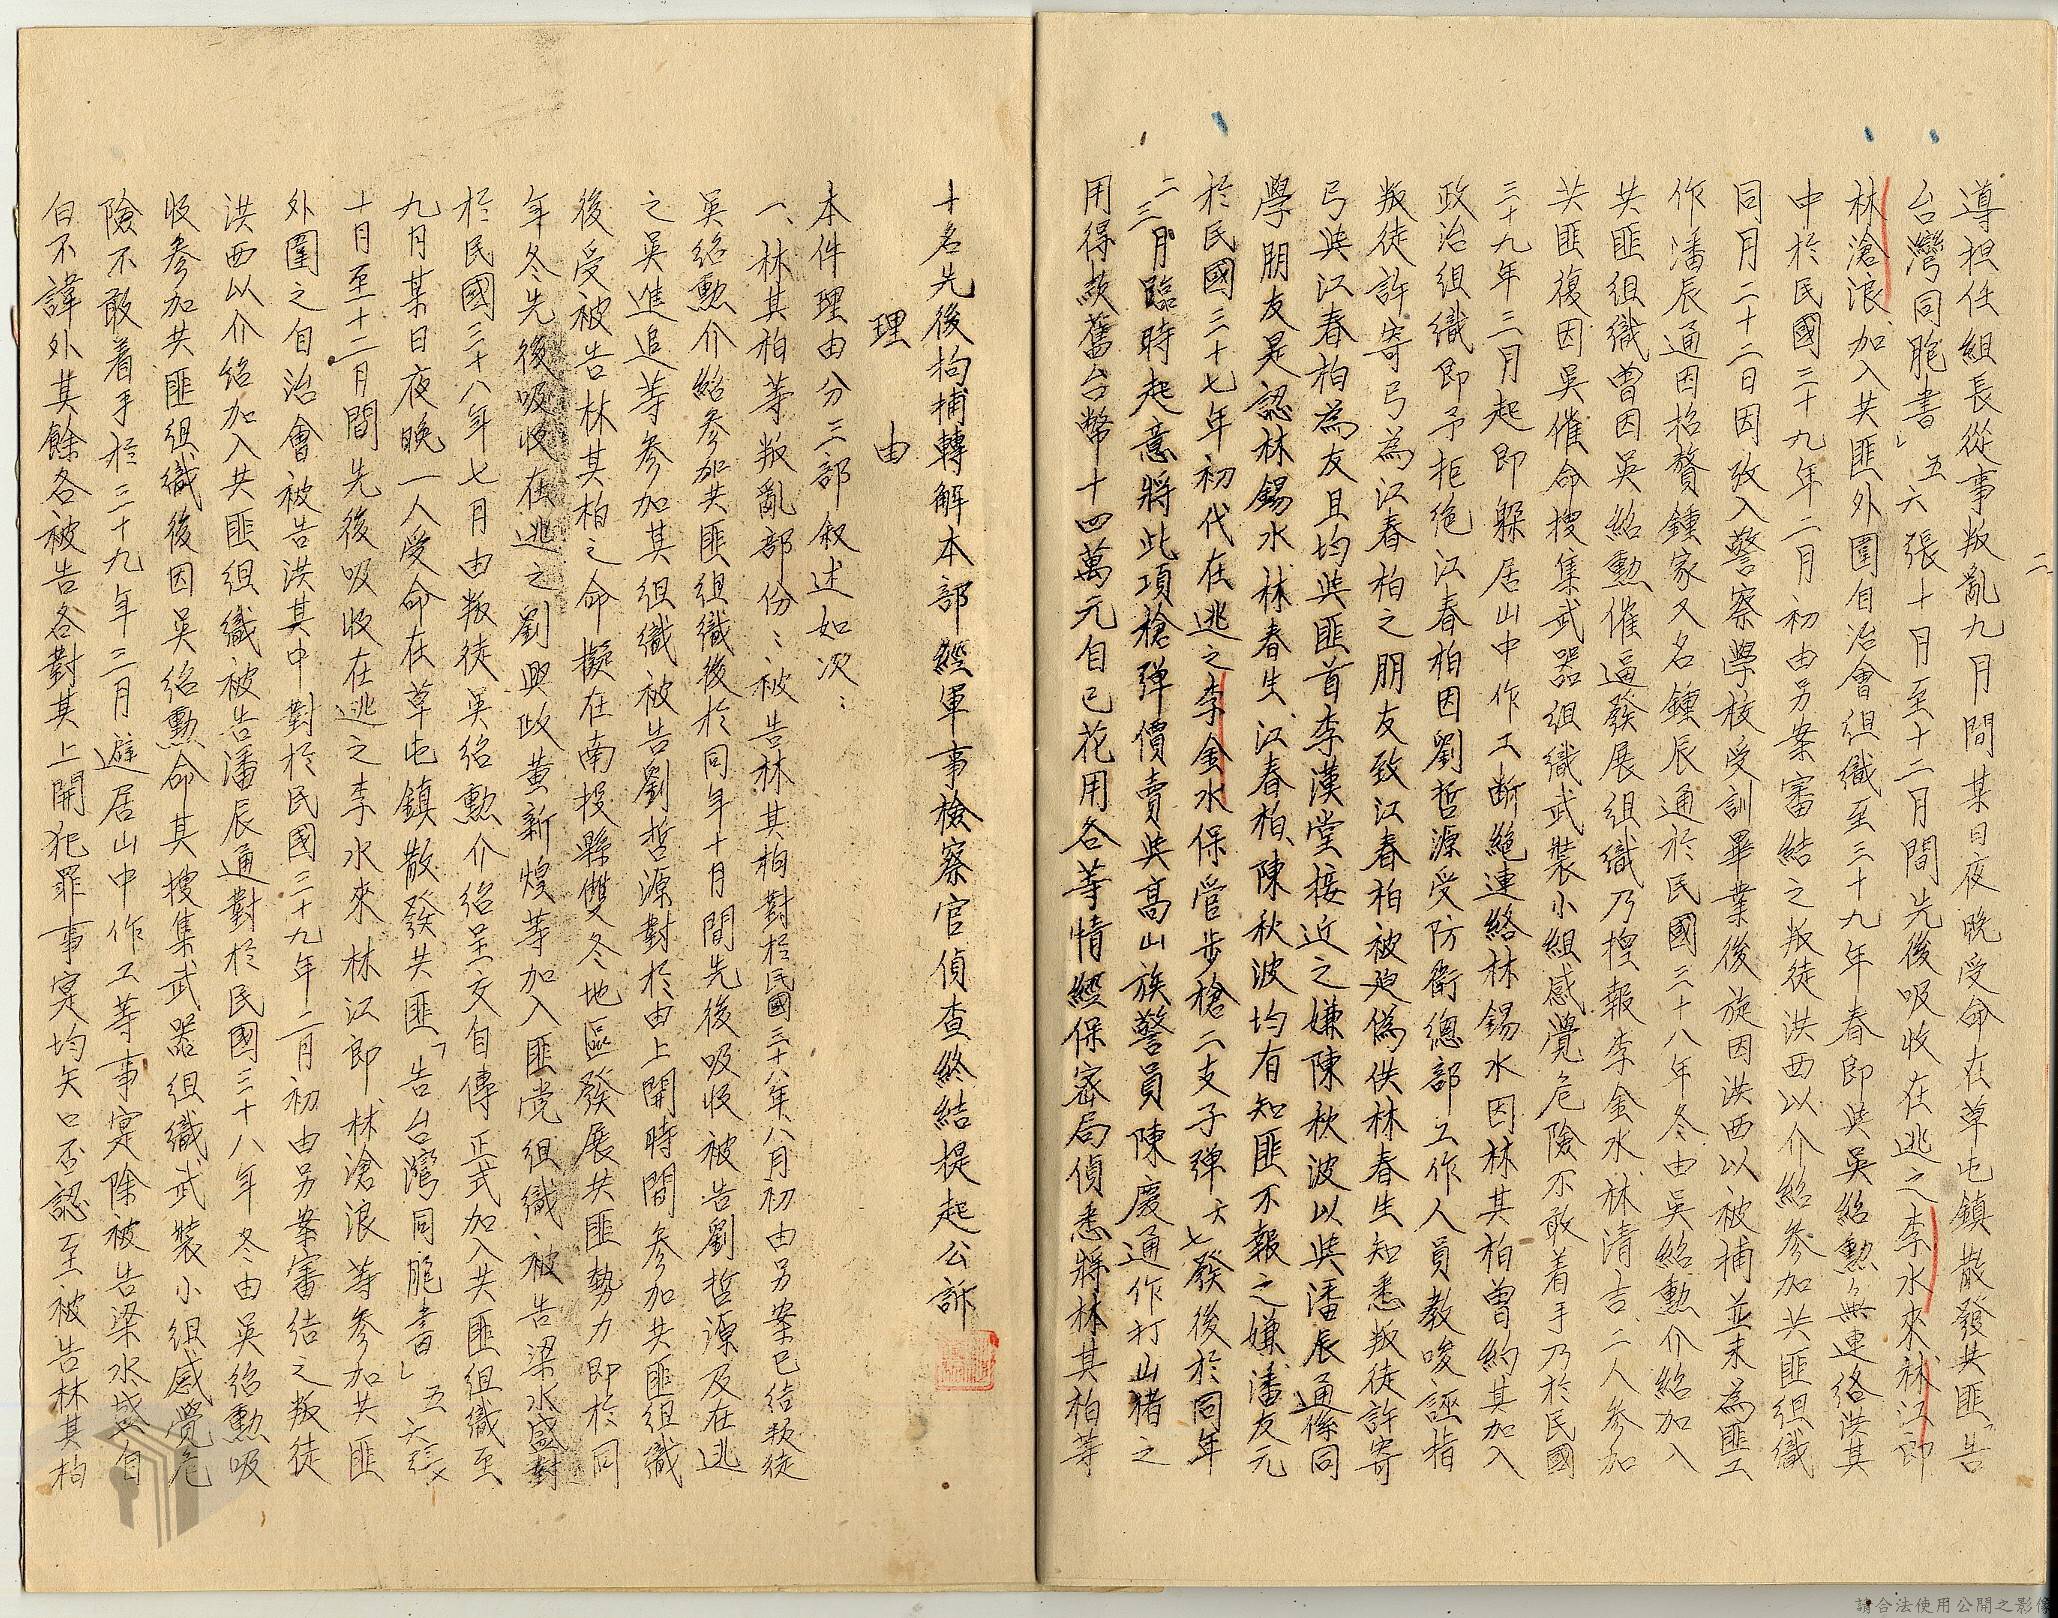 二
導担任組長從事叛亂九月間某日夜晚受命在草屯鎮散發共匪「告
台灣同胞書」五六張十月至十二月間先後吸收在逃之李水來林江郎
林滄浪加入共匪外圍自治會組織至三十九年春即與吳紹勲無連絡洪其
中於民國三十九年二月初由另案審結之叛徒洪西以介紹參加共匪組織
同月二十二日因攷入警察學校受訓畢業後旋因洪西以被捕並未為匪工
作潘辰通因招贅鍾家又名鍾辰通於民國三十八年冬由吳紹勲介紹加入
共匪組織曾因吳紹勲催逼發展組織乃捏報李金水林清吉二人參加
共匪復因吳催命搜集武器組織武裝小組感覺危險不敢着手乃於民國
三十九年三月起即躲居山中作工断絕連絡林錫水因林其柏曾約其加入
政治組織即予拒絕江春柏因劉哲源受防衛總部工作人員教唆誣指
叛徒許寄弓為江春柏之朋友致江春柏被迫偽供林春生知悉叛徒許寄
弓與江春柏為友且均與匪首李漢堂接近之嫌陳秋波以與潘辰通係同
學朋友是認林錫水林春生江春柏陳秋波均有知匪不報之嫌潘友元
於民國三十七年初代在逃之李金水保管步槍二支子彈六七發後於同年
二三月臨時起意將此項槍彈價賣與高山族警員陳慶通作打山猪之
用得欵舊台幣十四萬元自己花用各等情經保密局偵悉將林其柏等
十名先後拘捕轉解本部經軍事檢察官偵查終結提起公訴
理由
本件理由分三部叙述如次：
一、林其柏等叛亂部份：被告林其柏對於民國三十八年八月初由另案已結叛徒
吳紹勲介紹參加共匪組織後於同年十月間先後吸收被告劉哲源及在逃
之吳進追等參加其組織被告劉哲源對於由上開時間參加共匪組織
後受被告林其柏之命擬在南投縣雙冬地區發展共匪勢力即於同
年冬先後吸收在逃之劉興政黃新煌等加入匪党組織被告梁水盛對
於民國三十八年七月由叛徒吳紹勲介紹呈交自傳正式加入共匪組織至
九月某日夜晚一人受命在草屯鎮散發共匪「告台灣同胞書」五六張
十月至十二月間先後吸收在逃之李水來林江郎林滄浪等參加共匪
外圍之自治會被告洪其中對於民國三十九年二月初由另案審結之叛徒
洪西以介紹加入共匪組織被告潘辰通對於民國三十八年冬由吳紹勲吸
收參加共匪組織後因吳紹勲命其搜集武器組織武裝小組感覺危
險不敢着手於三十九年三月避居山中作工等事寔除被告梁水盛自
白不諱外其餘各被告各對其上開犯罪事寔均矢口否認至被告林其柏
請合法使用公開之影像